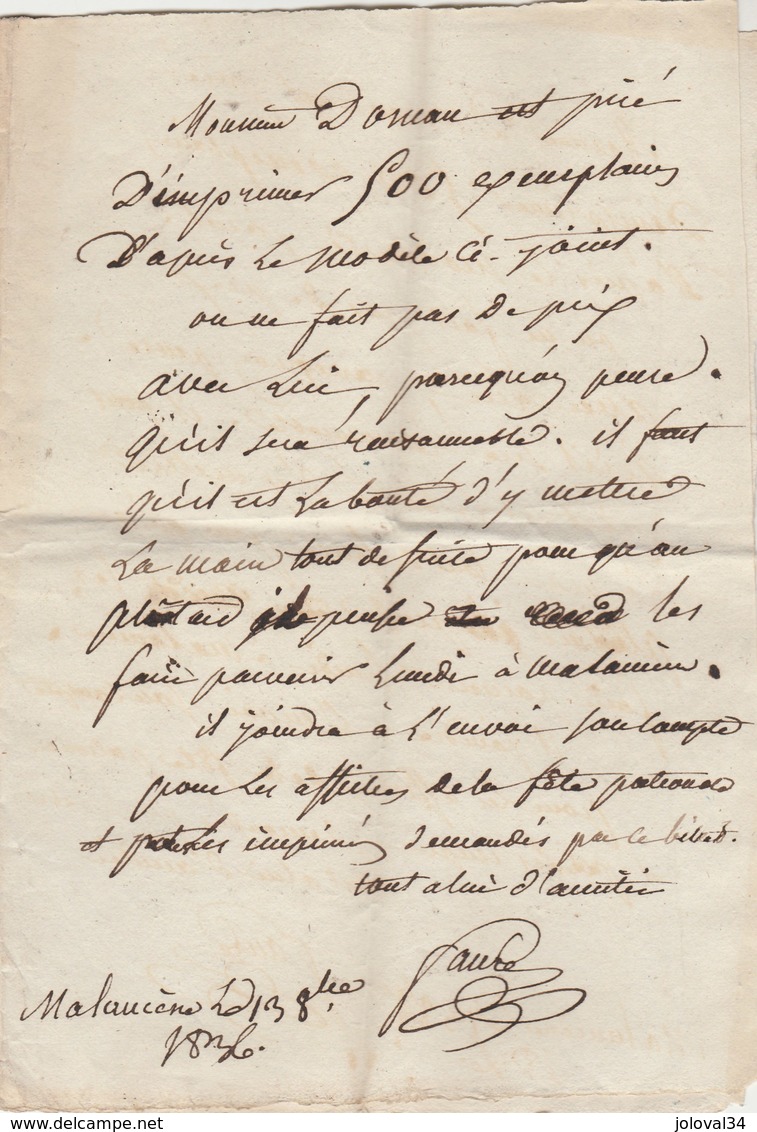 Monsieur Domeau est prié
D'imprimer 500 exemplaires
D'après le modèle ci-joint.
on ne fait pas de prix
avec lui, parcequ'on pense
qu'il sera raisonnable. il faut
qu'il est la bonté d'y mettre
la main tout de suite pour qu'au
plus tard il puisse les
faire parvenir lundi à Malaucène.
il joindra à l'envoi son compte
pour les affiches de la fête patronale
et les imprimés demandés par le billet.
tout à lui d'amitié
Faure
Malaucène le 13 8bre
1836.
www.delcampe.net
joloval34